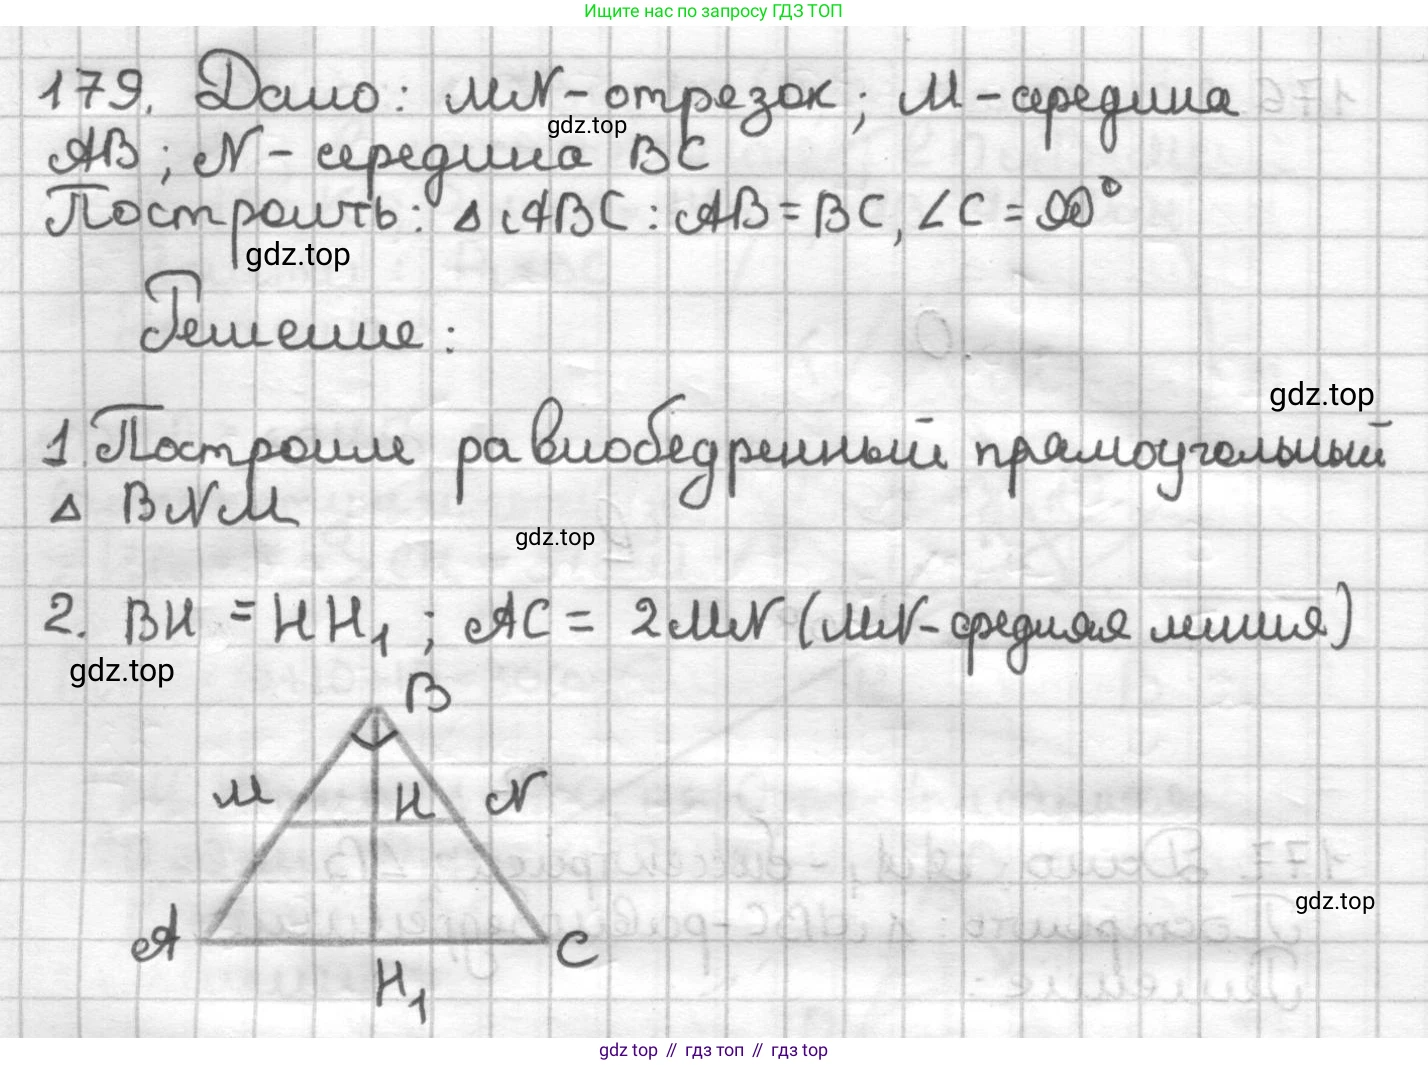 Ищите нас по запросу ГДЗ ТОП
179. Дано: MN - отрезок; M - середина
gdz.top
AB; N - середина BC
Построить: Δ ABC: AB = BC, ∠C = 90°
gdz.top
Решение:
gdz.top
1. Построим равнобедренный прямоугольный
Δ BNM
gdz.top
2. BH = HH₁; AC = 2MN (MN - средняя линия)
gdz.top
B
M H N
gdz.top
A C
H₁
gdz top // гдз топ // gdz.top